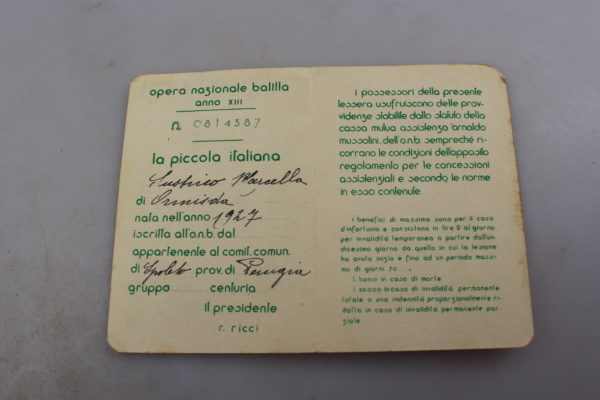 opera nazionale balilla
anno XIII
n. 0814387
la piccola italiana
Marcella
di Ormisda
nata nell'anno 1927
iscritta all'o.n.b. dal
appartenente al comit. comun.
di Spoleto prov. di Perugia
gruppo centuria
il presidente
r. ricci
i possessori della presente
tessera usufruiscono delle prov-
videnze stabilite dallo statuto della
cassa mutua assistenza "arnaldo
mussolini" dell'o.n.b. sempreché ri-
corrano le condizioni dell'apposito
regolamento per le concessioni
assistenziali e secondo le norme
in esso contenute.
i benefici di massima sono per il caso
d'infortunio e consistono in lire 2 al giorno
per invalidità temporanea a partire dall'un-
dicesimo giorno da quello in cui la lesione
ha avuto inizio e fino ad un periodo massi-
mo di giorni 70
l. 5000 in caso di morte
l. 10000 in caso di invalidità permanente
totale o una indennità proporzionalmente ri-
dotta in caso di invalidità permanente par-
ziale.